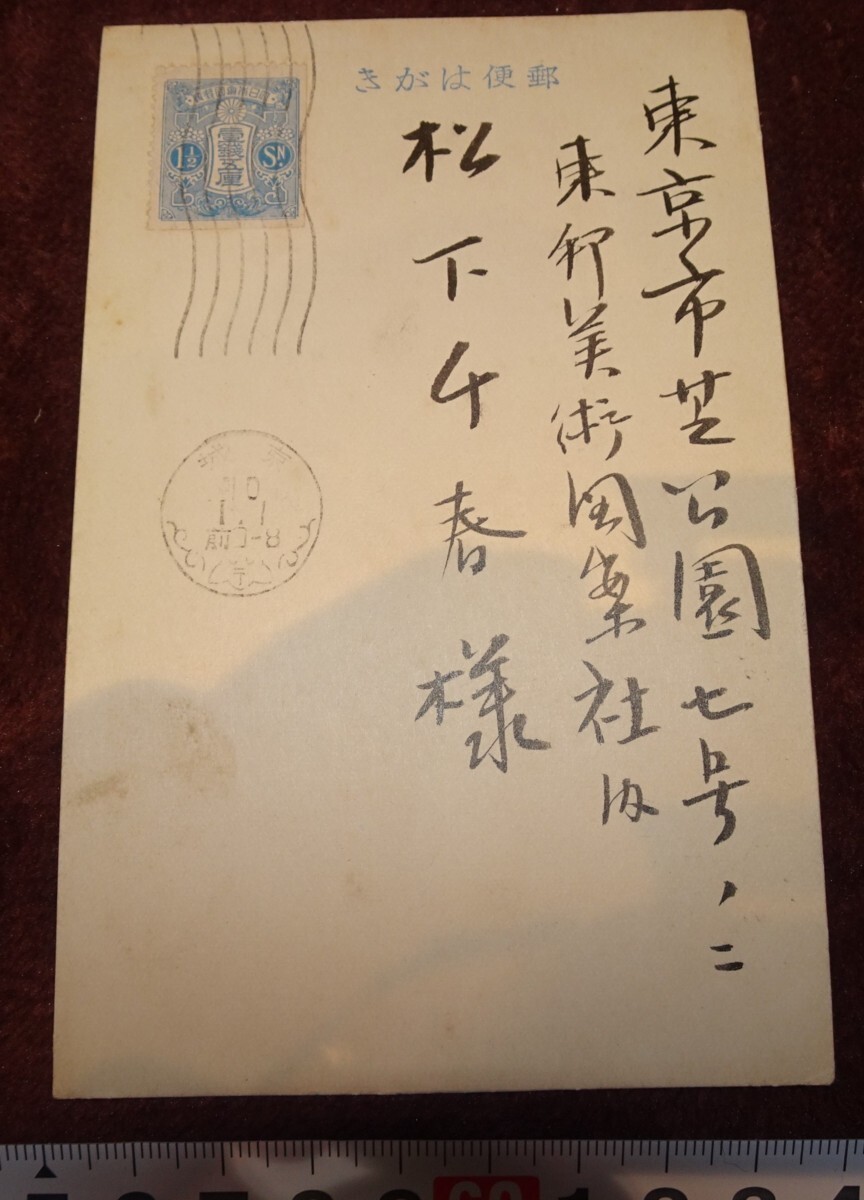 郵便はがき
東京市芝公園七号ノ二
東邦美術図案社内
松下千春様
壹錢五厘
1½ SN
10
1.1
前0-8
60